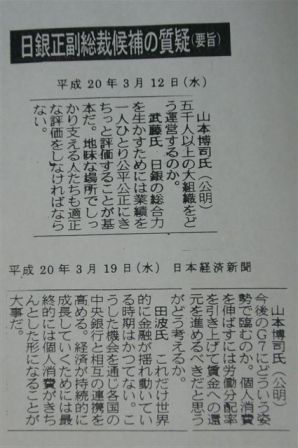 日銀正副総裁候補の質疑(要旨)
平成20年3月12日(水)
山本博司氏(公明)
五千人以上の大組織をど
う運営するのか。
武藤氏 日銀の総合力
を生かすためには業績を
一人ひとり公平公正にき
ちっと評価することが基
本だ。地味な場所でしっ
かり支える人たちも適正
な評価をしなければなら
ない。
平成20年3月19日(水) 日本経済新聞
山本博司氏(公明)
今後のG7にどういう姿
勢で臨むのか。個人消費
を伸ばすには労働分配率
を引き上げて賃金への還
元を進めるべきだと思う
がどう考えるか。
田波氏 これだけ世界
的に金融が揺れ動いてい
る時期はかつてない。こ
うした機会を通じ各国の
中央銀行と相互の連携を
高める。経済が持続的に
成長していくためには最
終的には個人消費がきち
んとした形になることが
大事だ。